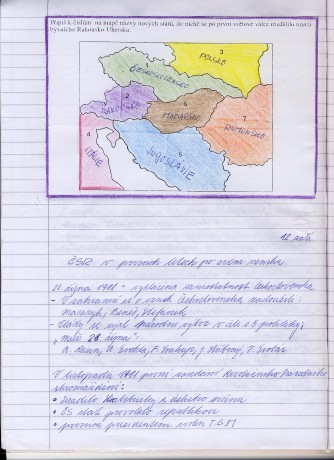 Připiš k číslům na mapě názvy nových států, do nichž se po první světové válce rozdělilo území
bývalého Rakousko-Uherska.
3
POLSKO
1
ČESKOSLOVENSKO
2
RAKOUSKO
MAĎARSKO
7
RUMUNSKO
4
ITÁLIE
6
JUGOSLÁVIE
12. září
ČSR v prvních letech po svém vzniku
28. října 1918 - vyhlášena samostatnost Československa
- V zahraničí se o vznik Československa zasloužili:
Masaryk, Beneš, Štefánik
- vlády se ujal národní výbor v čele s 5 politiky,
„muži 28. října":
A. Rašín, A. Švehla, F. Soukup, J. Stříbrný, V. Šrobár
V listopadu 1918 první zasedání Revolučního Národního
shromáždění:
• Habsburky z českého trůnu
• ČS stát republikou
• prvním prezidentem zvolen T.G.M